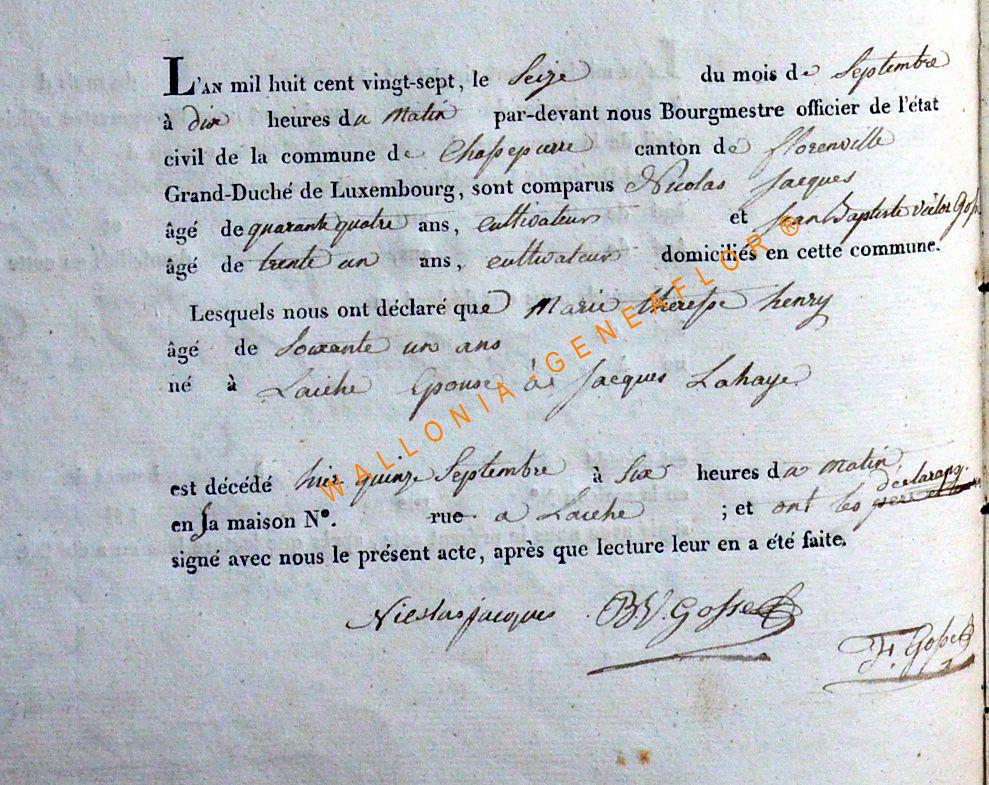 L'AN mil huit cent vingt-sept, le Seize du mois de Septembre
à dix heures du Matin par-devant nous Bourgmestre officier de l'état
civil de la commune de Chassepierre canton de florenville
Grand-Duché de Luxembourg, sont comparus Nicolas Jacques
âgé de quarante quatre ans, cultivateur et Jean Baptiste victor
âgé de trente un ans, cultivateur domiciliés en cette commune.
Lesquels nous ont déclaré que Marie theresse henry
âgé de Soixante un ans
né à Laiche Epouse à Jacques Lahaye
est décédé hier quinze Septembre à Six heures du Matin
en Sa maison N°. rue a Laiche ; et ont les déclarans
signé avec nous le présent acte, après que lecture leur en a été faite.
Nicolas jacques B.V. Gosse
F. Gosse
WALLONIA-GENEAFLOR ®